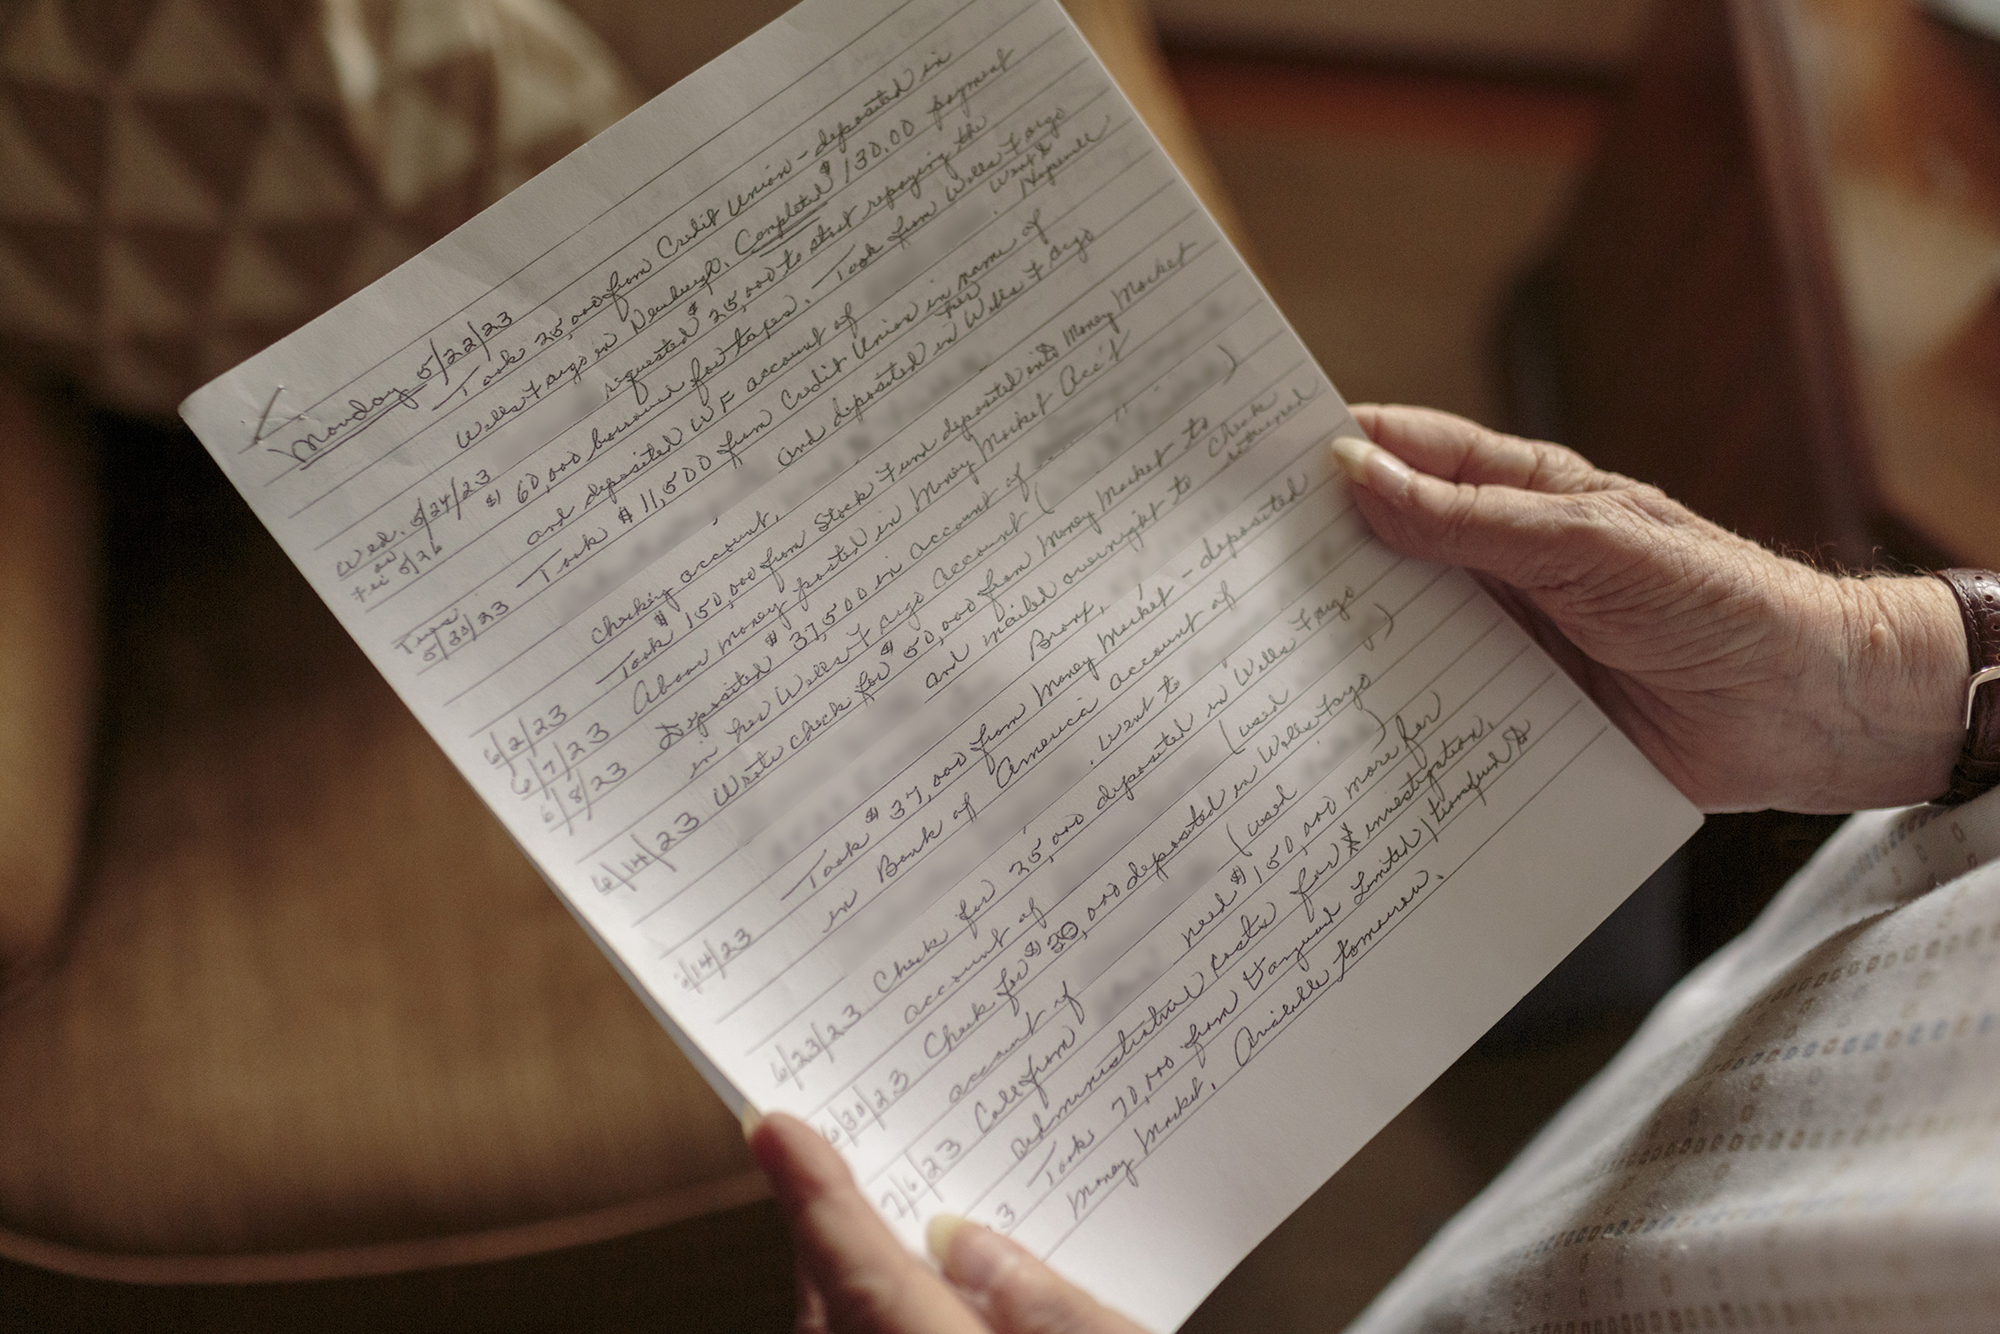 Monday 5/22/23
Took 25,000 from Credit Union - deposited in
Wells Fargo in Newburgh. Completed $130.00 payment
Wed. 5/24/23 requested $25,000 to start repaying the
$60,000 borrowed for taxes. Took from Wells Fargo
Fri 5/26 and deposited WF account of Went to
Tues 5/30/23 Took $11,500 from Credit Union in name of
and deposited in her Wells Fargo
checking account.
6/2/23 Took $150,000 from Stock Fund deposited into Money Market
6/7/23 Above money posted in Money Market Acc't
6/8/23 Deposited $37,500 in account of
in her Wells Fargo account ( )
6/14/23 Wrote check for $50,000 from Money Market to
and mailed overnight to check returned
Bronx,
6/14/23 Took $37,000 from Money Market - deposited
in Bank of America account of
went to
6/23/23 Check for 25,000 deposited in Wells Fargo
account of (used )
6/30/23 Check for $30,000 deposited in Wells Fargo
account of (used )
7/6/23 Call from need $150,000 more for
administrative costs for investigation.
13 Took 70,000 from Vanguard Limited
Money Market. Available tomorrow.